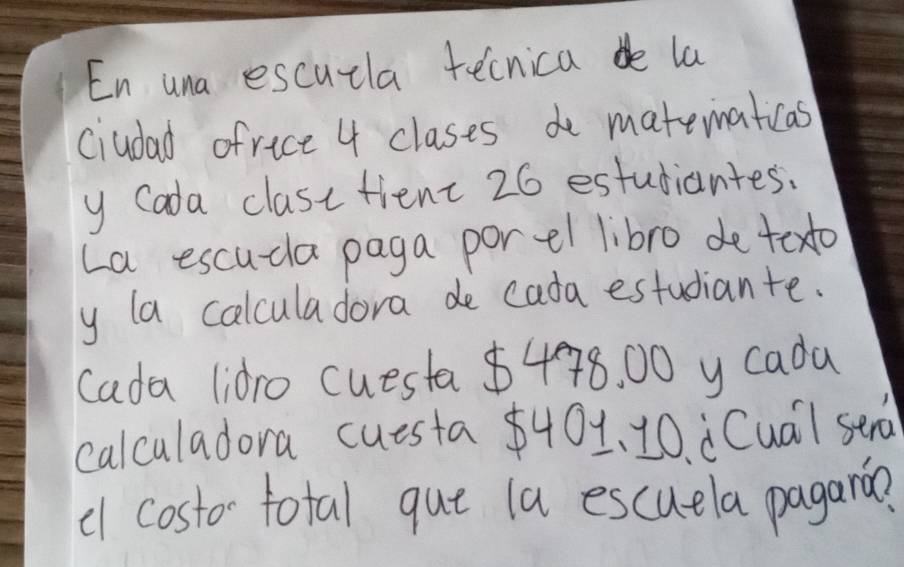 En una escuela técnica de la
ciudad ofrece 4 clases de matematicas
y cada clase tiene 26 estudiantes.
La escuela paga por el libro de texto
y la calculadora de cada estudiante.
Cada libro cuesta $478.00 y cada
calculadora cuesta $401.10. ¿Cuál será
el costo total que la escuela pagará?